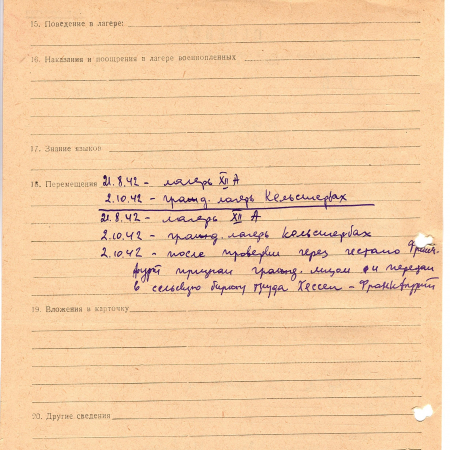 15. Поведение в лагере:
16. Наказания и поощрения в лагере военнопленных
17. Знание языков
18. Перемещения 21.8.42 - лагерь XII А
2.10.42 - гражд. лагерь Кельстербах
21.8.42 - лагерь XII А
2.10.42 - гражд. лагерь Кельстербах
2.10.42 - после проверки через гестапо Франк-
фурт признан гражд. лицом и передан
в сельскую биржу труда Хессен - Франкфурт
19. Вложения в карточку
20. Другие сведения